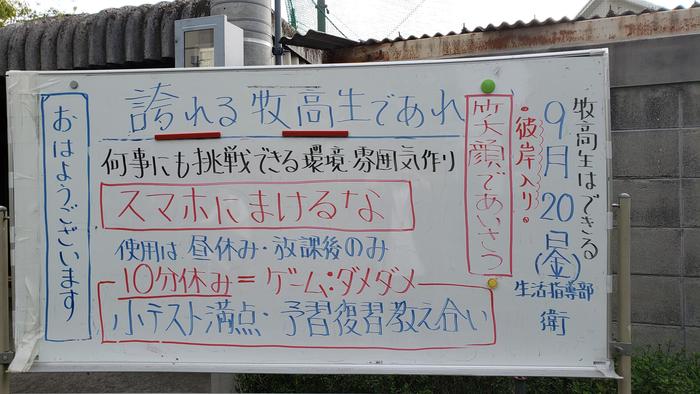 牧高生はできる
9月20日(金)
・彼岸入り・
生活指導部
衛
笑顔であいさつ
誇れる牧高生であれ
何事にも挑戦できる環境雰囲気作り
スマホにまけるな
使用は昼休み・放課後のみ
10分休み=ゲーム:ダメダメ
小テスト満点・予習復習教え合い
おはようございます